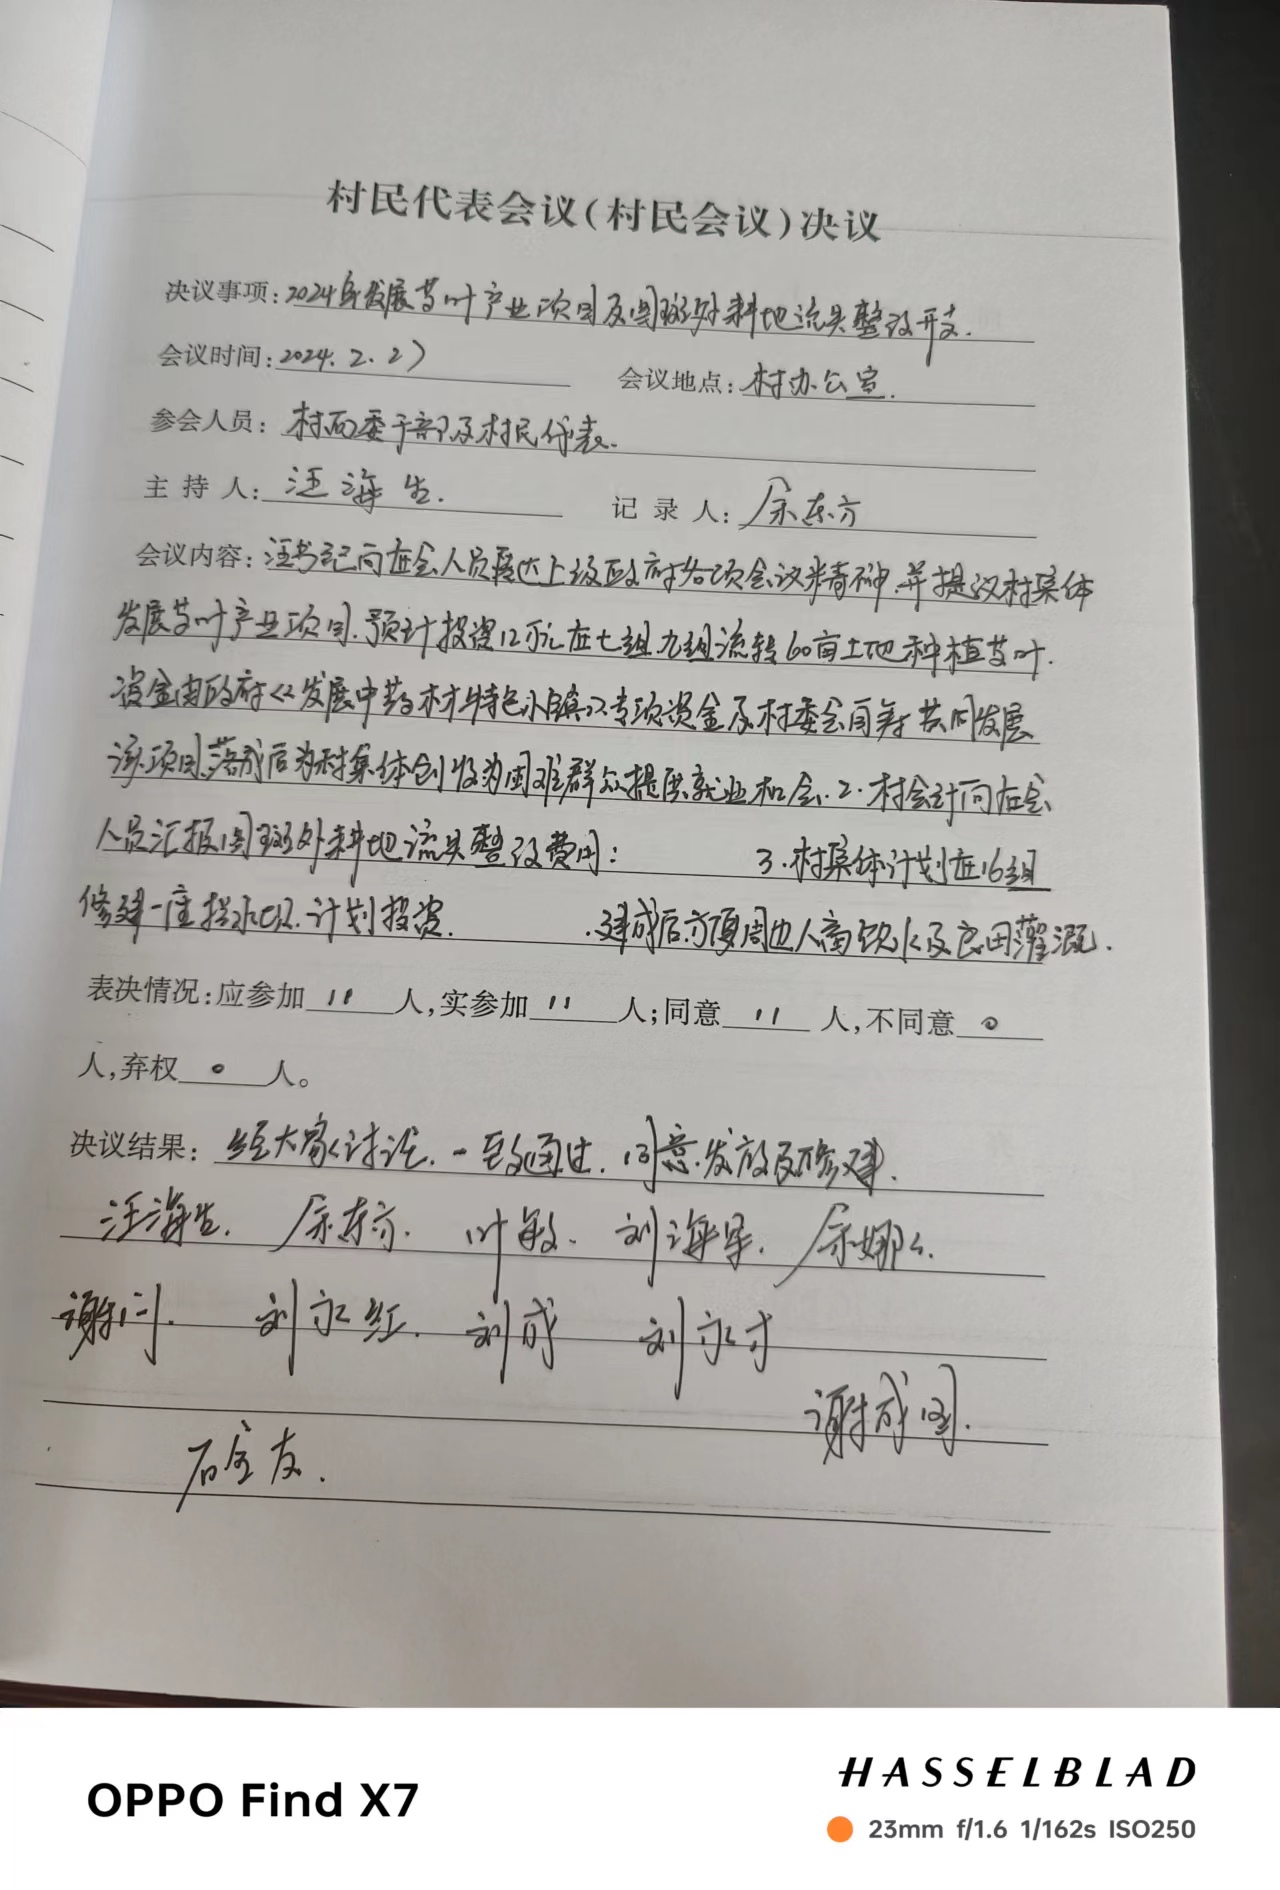 村民代表会议(村民会议)决议
决议事项:2024年发展艾叶产业项目及图斑外耕地流失整改开支.
会议时间:2024.2.27 会议地点:村办公室.
参会人员:村两委干部及村民代表.
主持人:汪海生. 记录人:余东方
会议内容:汪书记向在会人员传达上级政府各项会议精神.并提议村集体
发展艾叶产业项目.预计投资12万元在七组九组流转60亩土地种植艾叶.
资金由政府《发展中药材特色小镇》专项资金及村委会自筹共同发展
该项目.落成后为村集体创收为困难群众提供就业机会.2.村会计向在会
人员汇报图斑外耕地流失整改费用: 3.村集体计划在16组
修建一座挡水坝.计划投资. .建成后方便周边人畜饮水及农田灌溉.
表决情况:应参加11人,实参加11人;同意11人,不同意0
人,弃权0人。
决议结果:经大家讨论.一致通过.同意发放及修建.
汪海生. 余东方. 叶敏. 刘海军. 余娜么.
谢 刘永红. 刘成 刘永才
谢成国.
石金友.
OPPO Find X7
HASSELBLAD
23mm f/1.6 1/162s ISO250